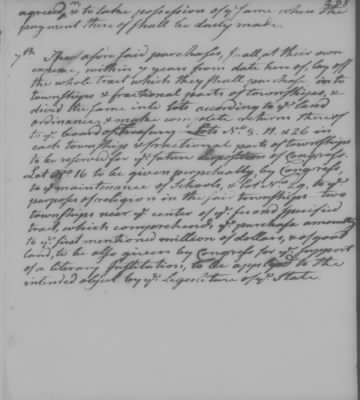 agreed on, & to take possession of ye same when the
payment thereof shall be duely made.
7th The aforesaid purchasers, shall at their own
expence, within 7 years from date hereof, lay off
the whole tract which they shall purchase into
townships & fractional parts of townships, &
divid the same into lots according to ye land
ordinance, & make complete returns thereof
to ye board of treasury. Lots No. 8. 11. & 26 in
each township & fractional parts of townships
to be reserved for ye future disposition of Congress.
Lot No 16 to be given perpetually, by Congress
to ye maintenance of Schools, & lot No. 29. to ye
purpose of religion in the said townships. two
townships near ye center of ye second specified
tract, which comprehends, ye purchase amounting
to ye first mentioned million of dollars, & of good
land, to be also given by Congress for ye support
of a literary Institution, to be applyed to the
intended object by ye Legislature of ye State.